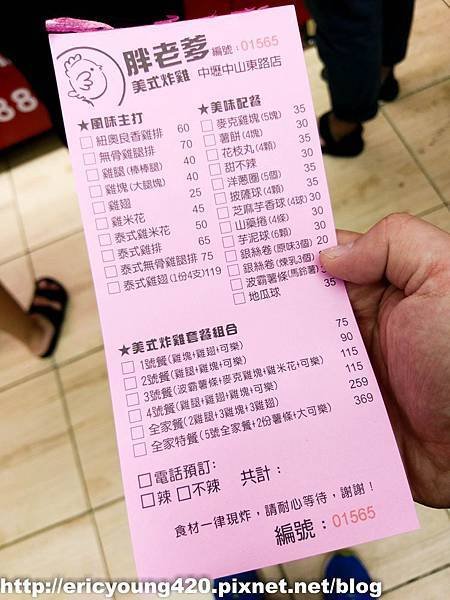 胖老爹 編號:01565
美式炸雞 中壢中山東路店
★風味主打
□ 紐奧良香雞排 60
□ 無骨雞腿排 70
□ 雞腿(棒棒腿) 40
□ 雞塊(大腿塊) 40
□ 雞翅 25
□ 雞米花 45
□ 泰式雞米花 50
□ 泰式雞排 65
□ 泰式無骨雞腿排 75
□ 泰式雞翅(1份4支)119
★美味配餐
□ 麥克雞塊(5塊) 35
□ 薯餅(4塊) 30
□ 花枝丸(4顆) 35
□ 甜不辣 30
□ 洋蔥圈(5個) 35
□ 披薩球(4顆) 35
□ 芝麻芋香球(4球) 30
□ 山藥捲(4條) 30
□ 芋泥球(6顆) 30
□ 銀絲卷(原味3個) 20
□ 銀絲卷(煉乳3個)
□ 波霸薯條(馬鈴薯)
□ 地瓜球 35
★美式炸雞套餐組合
□ 1號餐(雞塊+雞翅+可樂) 75
□ 2號餐(雞腿+雞塊+可樂) 90
□ 3號餐(波霸薯條+麥克雞塊+雞米花+可樂) 115
□ 4號餐(雞腿+雞塊+雞翅+可樂) 115
□ 全家餐(2雞腿+3雞塊+3雞翅) 259
□ 全家特餐(5號全家餐+2份薯條+大可樂) 369
□電話預訂:
□辣 □不辣 共計:
食材一律現炸,請耐心等待,謝謝!
編號:01565
88
http://ericyoung420.pixnet.net/blog